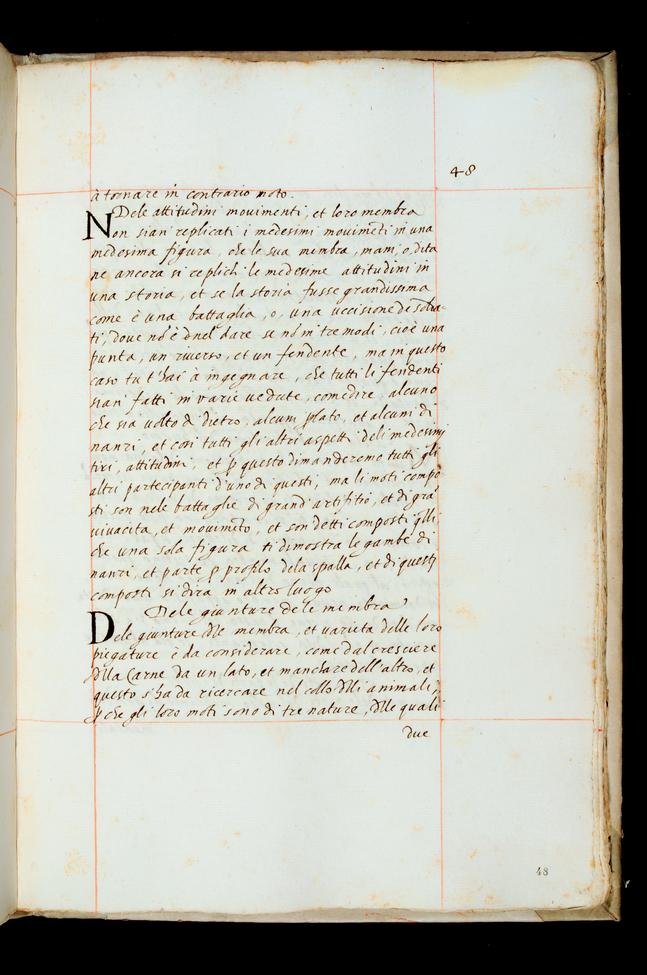 48
à tornare in contrario moto.
Dele attitudini movimenti, et loro membra
Non sian replicati i medesimi movimẽti in una
medesima figura, che le sua membra, mani, o, dita
ne ancora si replichi le medesime attitudini in
una storia, et se la storia fusse grandissima
come è una battaglia, o, una uccisione di solda-
ti, dove nõ è dnel dare se nõ in tre modi, cioè una
punta, un riverso, et un fendente, ma in questo
caso tu t'hai à ingegnare, che tutti li fendenti
sian fatti in varie vedute, come dire, alcuno
che sia volto di dietro, alcuni p lato, et alcuni di
nanzi, et cosi tutti gli altri aspetti deli medesimi
tiri, attitudini, et p questo dimanderemo tutti gli
altri partecipanti d'uno di questi, ma li moti compo
sti son nele battaglie di grand'artifitio, et di grã
vivacita, et movimẽto, et son detti composti q̃lli
che una sola figura ti dimostra le gambe di
nanzi, et parte p profilo dela spalla, et di questi
composti si dira in altro luogo
Dele giunture dele membra
Dele giunture dlle membra, et varieta delle loro
piegature è da considerare, come dal cresciere
dlla Carne da un lato, et manchare dell'altro, et
questo s'ha da ricercare nel collo dlli animali,
p che gli loro moti sono di tre nature, dlle quali
due
48